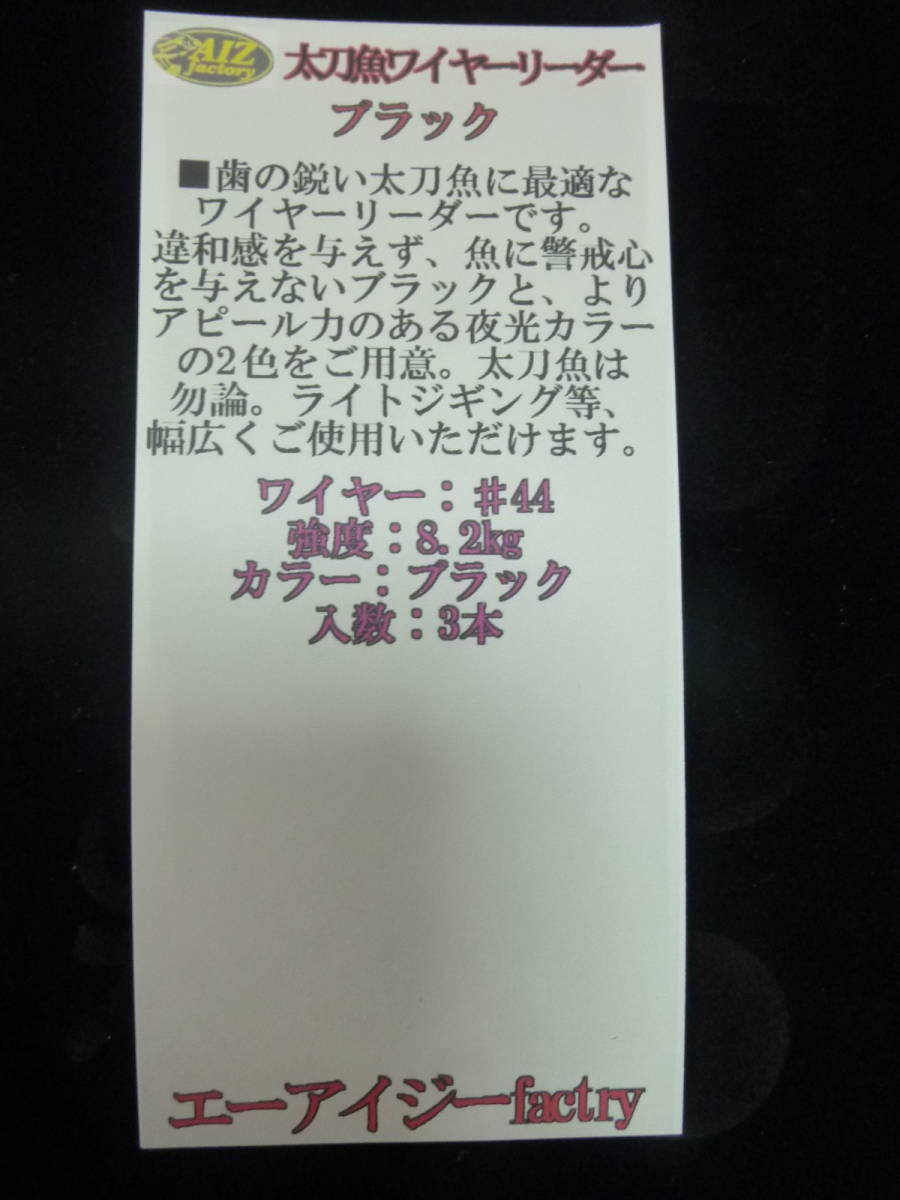 AIZ
factory
太刀魚ワイヤーリーダー
ブラック
■歯の鋭い太刀魚に最適な
ワイヤーリーダーです。
違和感を与えず、魚に警戒心
を与えないブラックと、より
アピール力のある夜光カラー
の2色をご用意。太刀魚は
勿論。ライトジギング等、
幅広くご使用いただけます。
ワイヤー：♯44
強度：8.2kg
カラー：ブラック
入数：3本
エーアイジーfactry